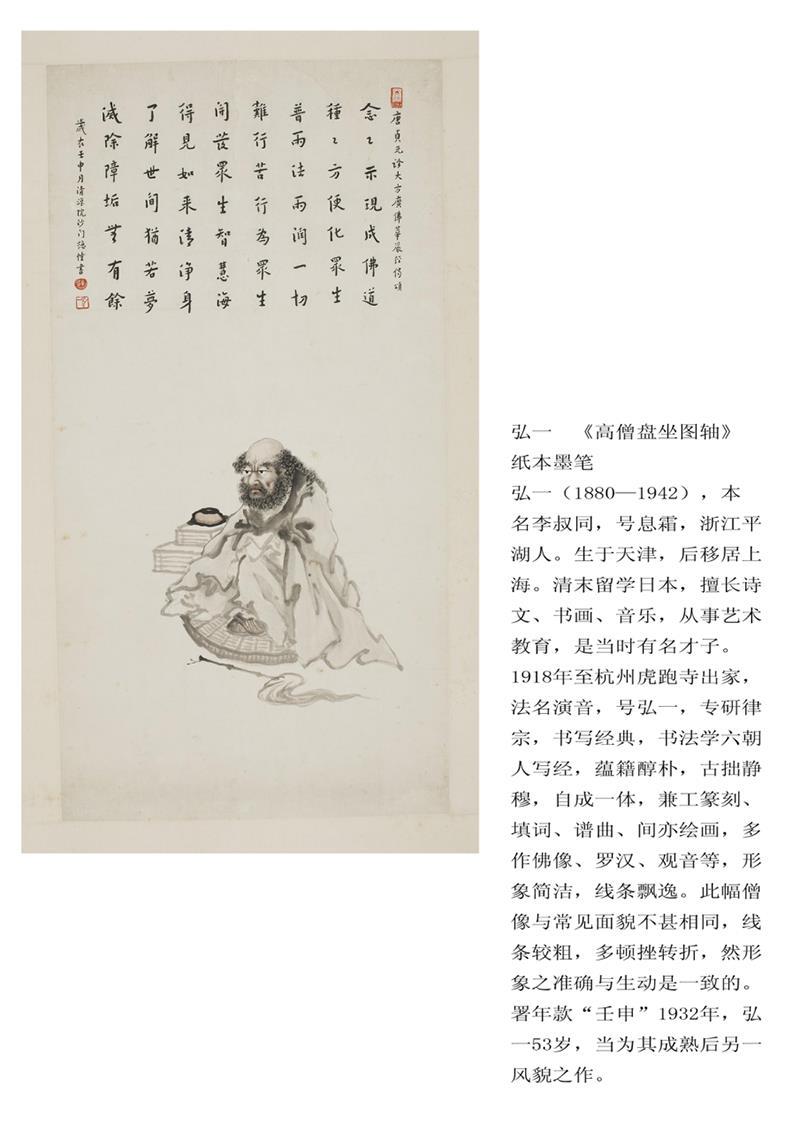 唐貞元譯大方廣佛華嚴經偈頌
念〻示現成佛道
種〻方便化眾生
普雨法雨潤一切
難行苦行為眾生
開發眾生智慧海
得見如来清淨身
了解世間猶若夢
滅除障垢無有餘
歲在壬申月沙门書
弘一　《高僧盘坐图轴》
纸本墨笔
弘一（1880—1942），本
名李叔同，号息霜，浙江平
湖人。生于天津，后移居上
海。清末留学日本，擅长诗
文、书画、音乐，从事艺术
教育，是当时有名才子。
1918年至杭州虎跑寺出家，
法名演音，号弘一，专研律
宗，书写经典，书法学六朝
人写经，蕴籍醇朴，古拙静
穆，自成一体，兼工篆刻、
填词、谱曲、间亦绘画，多
作佛像、罗汉、观音等，形
象简洁，线条飘逸。此幅僧
像与常见面貌不甚相同，线
条较粗，多顿挫转折，然形
象之准确与生动是一致的。
署年款“壬申”1932年，弘
一53岁，当为其成熟后另一
风貌之作。